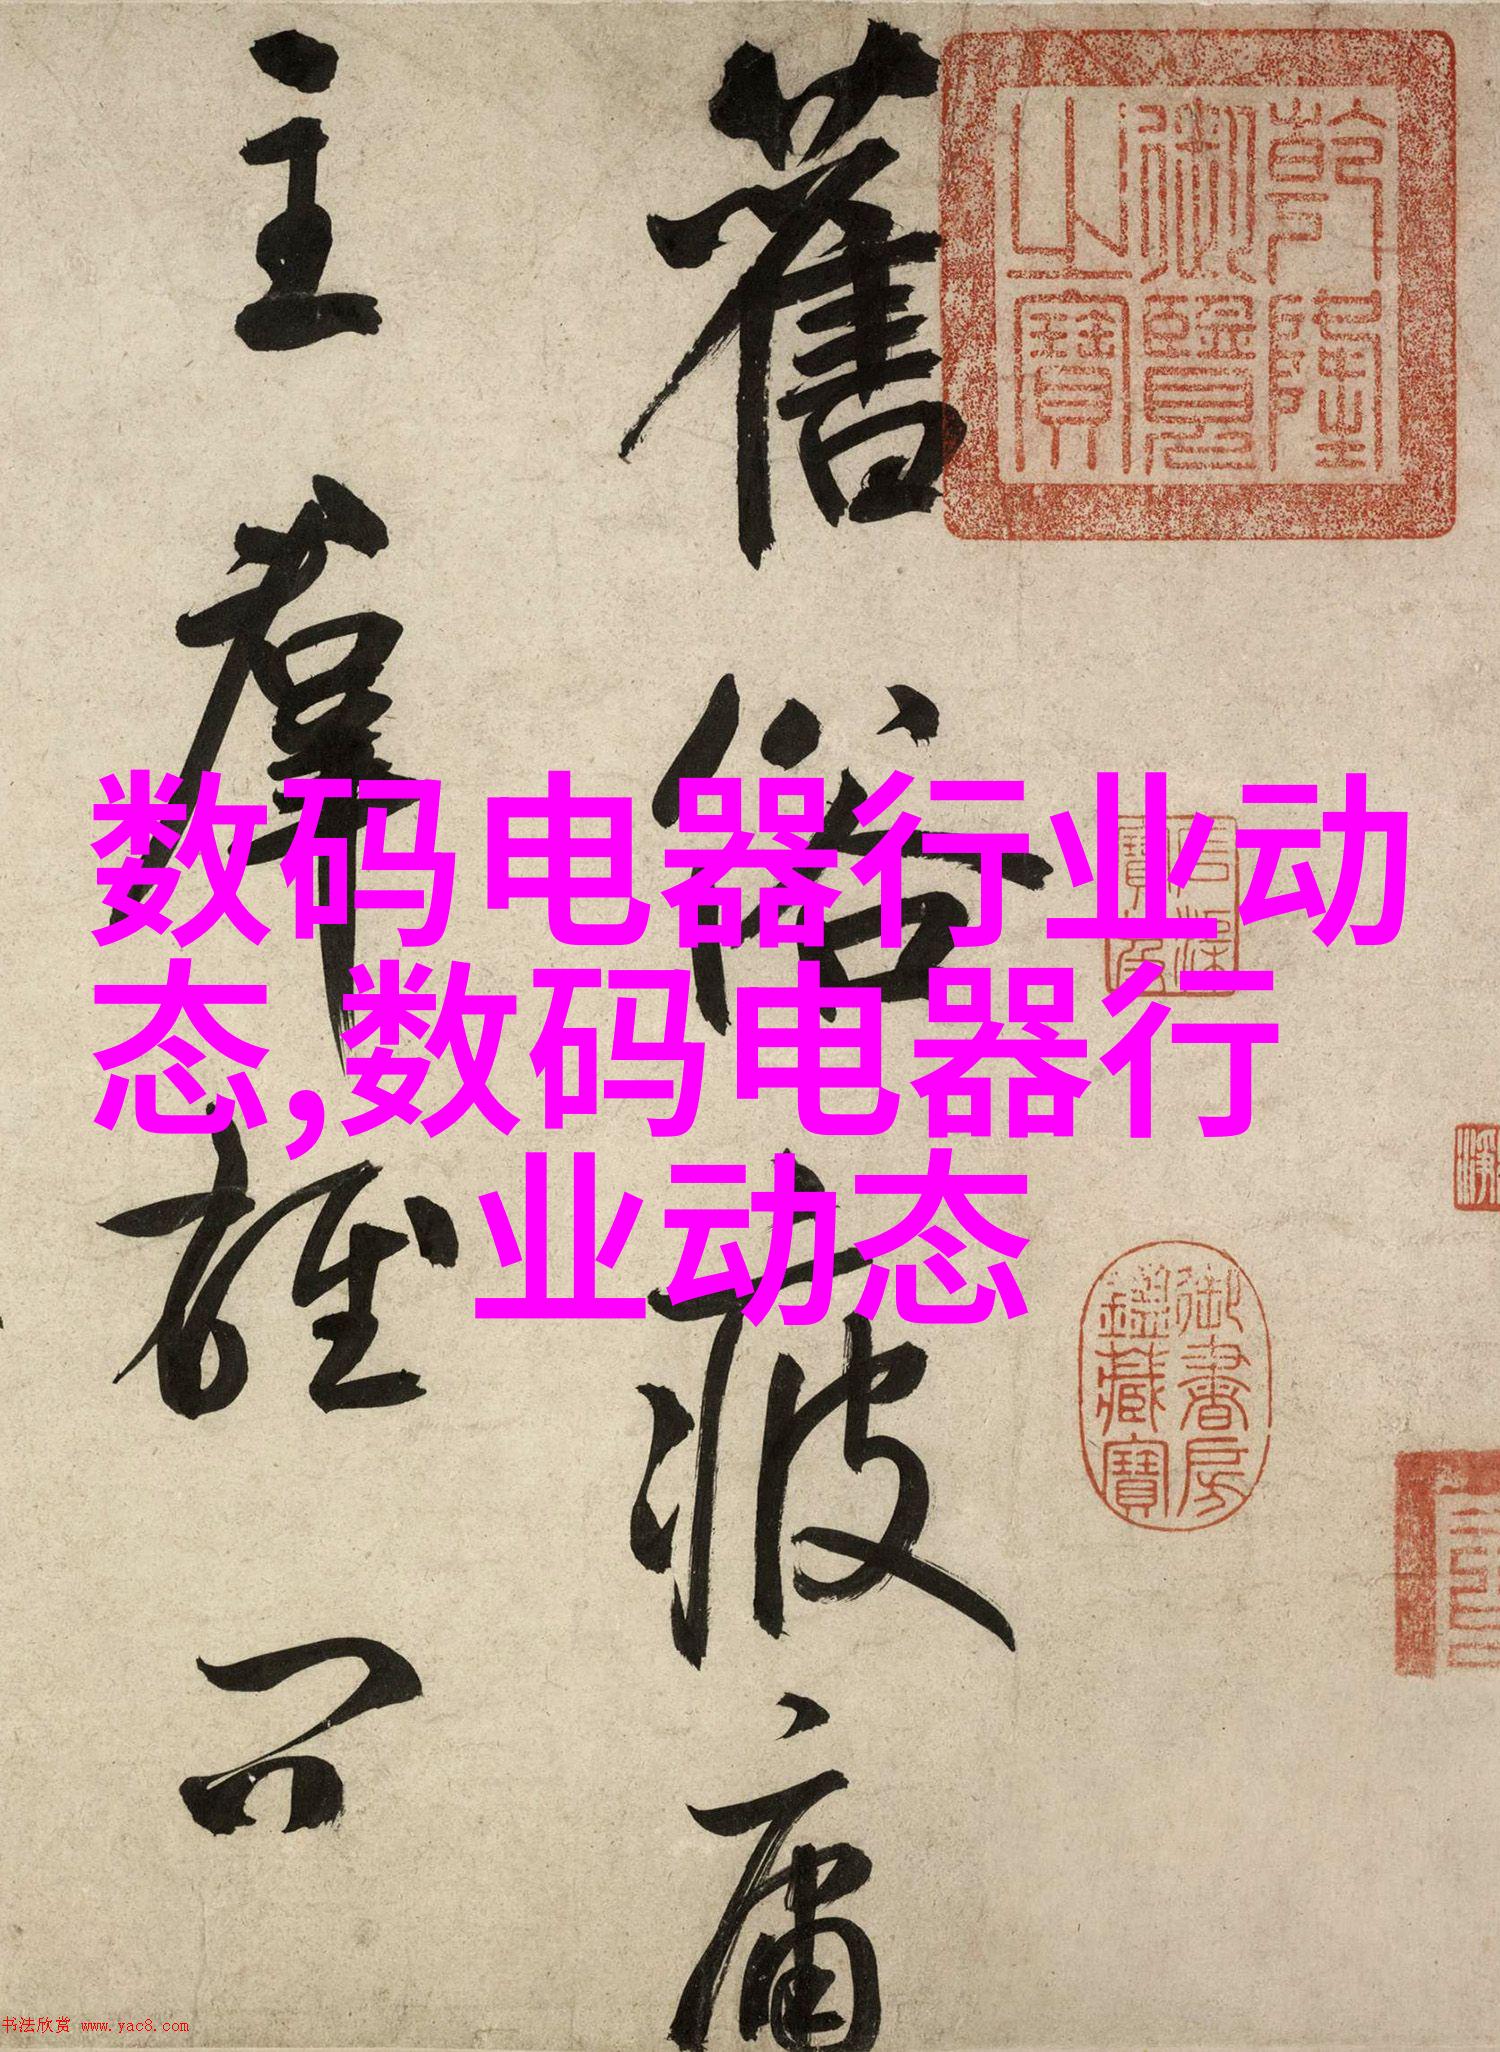 舊俗疲庸
主羣雄問
乾隆御覽之寶
石渠寶笈
御書房鑑藏寶
数码电器行业动
态,数码电器行
业动态
书法欣赏 www.yac8.com